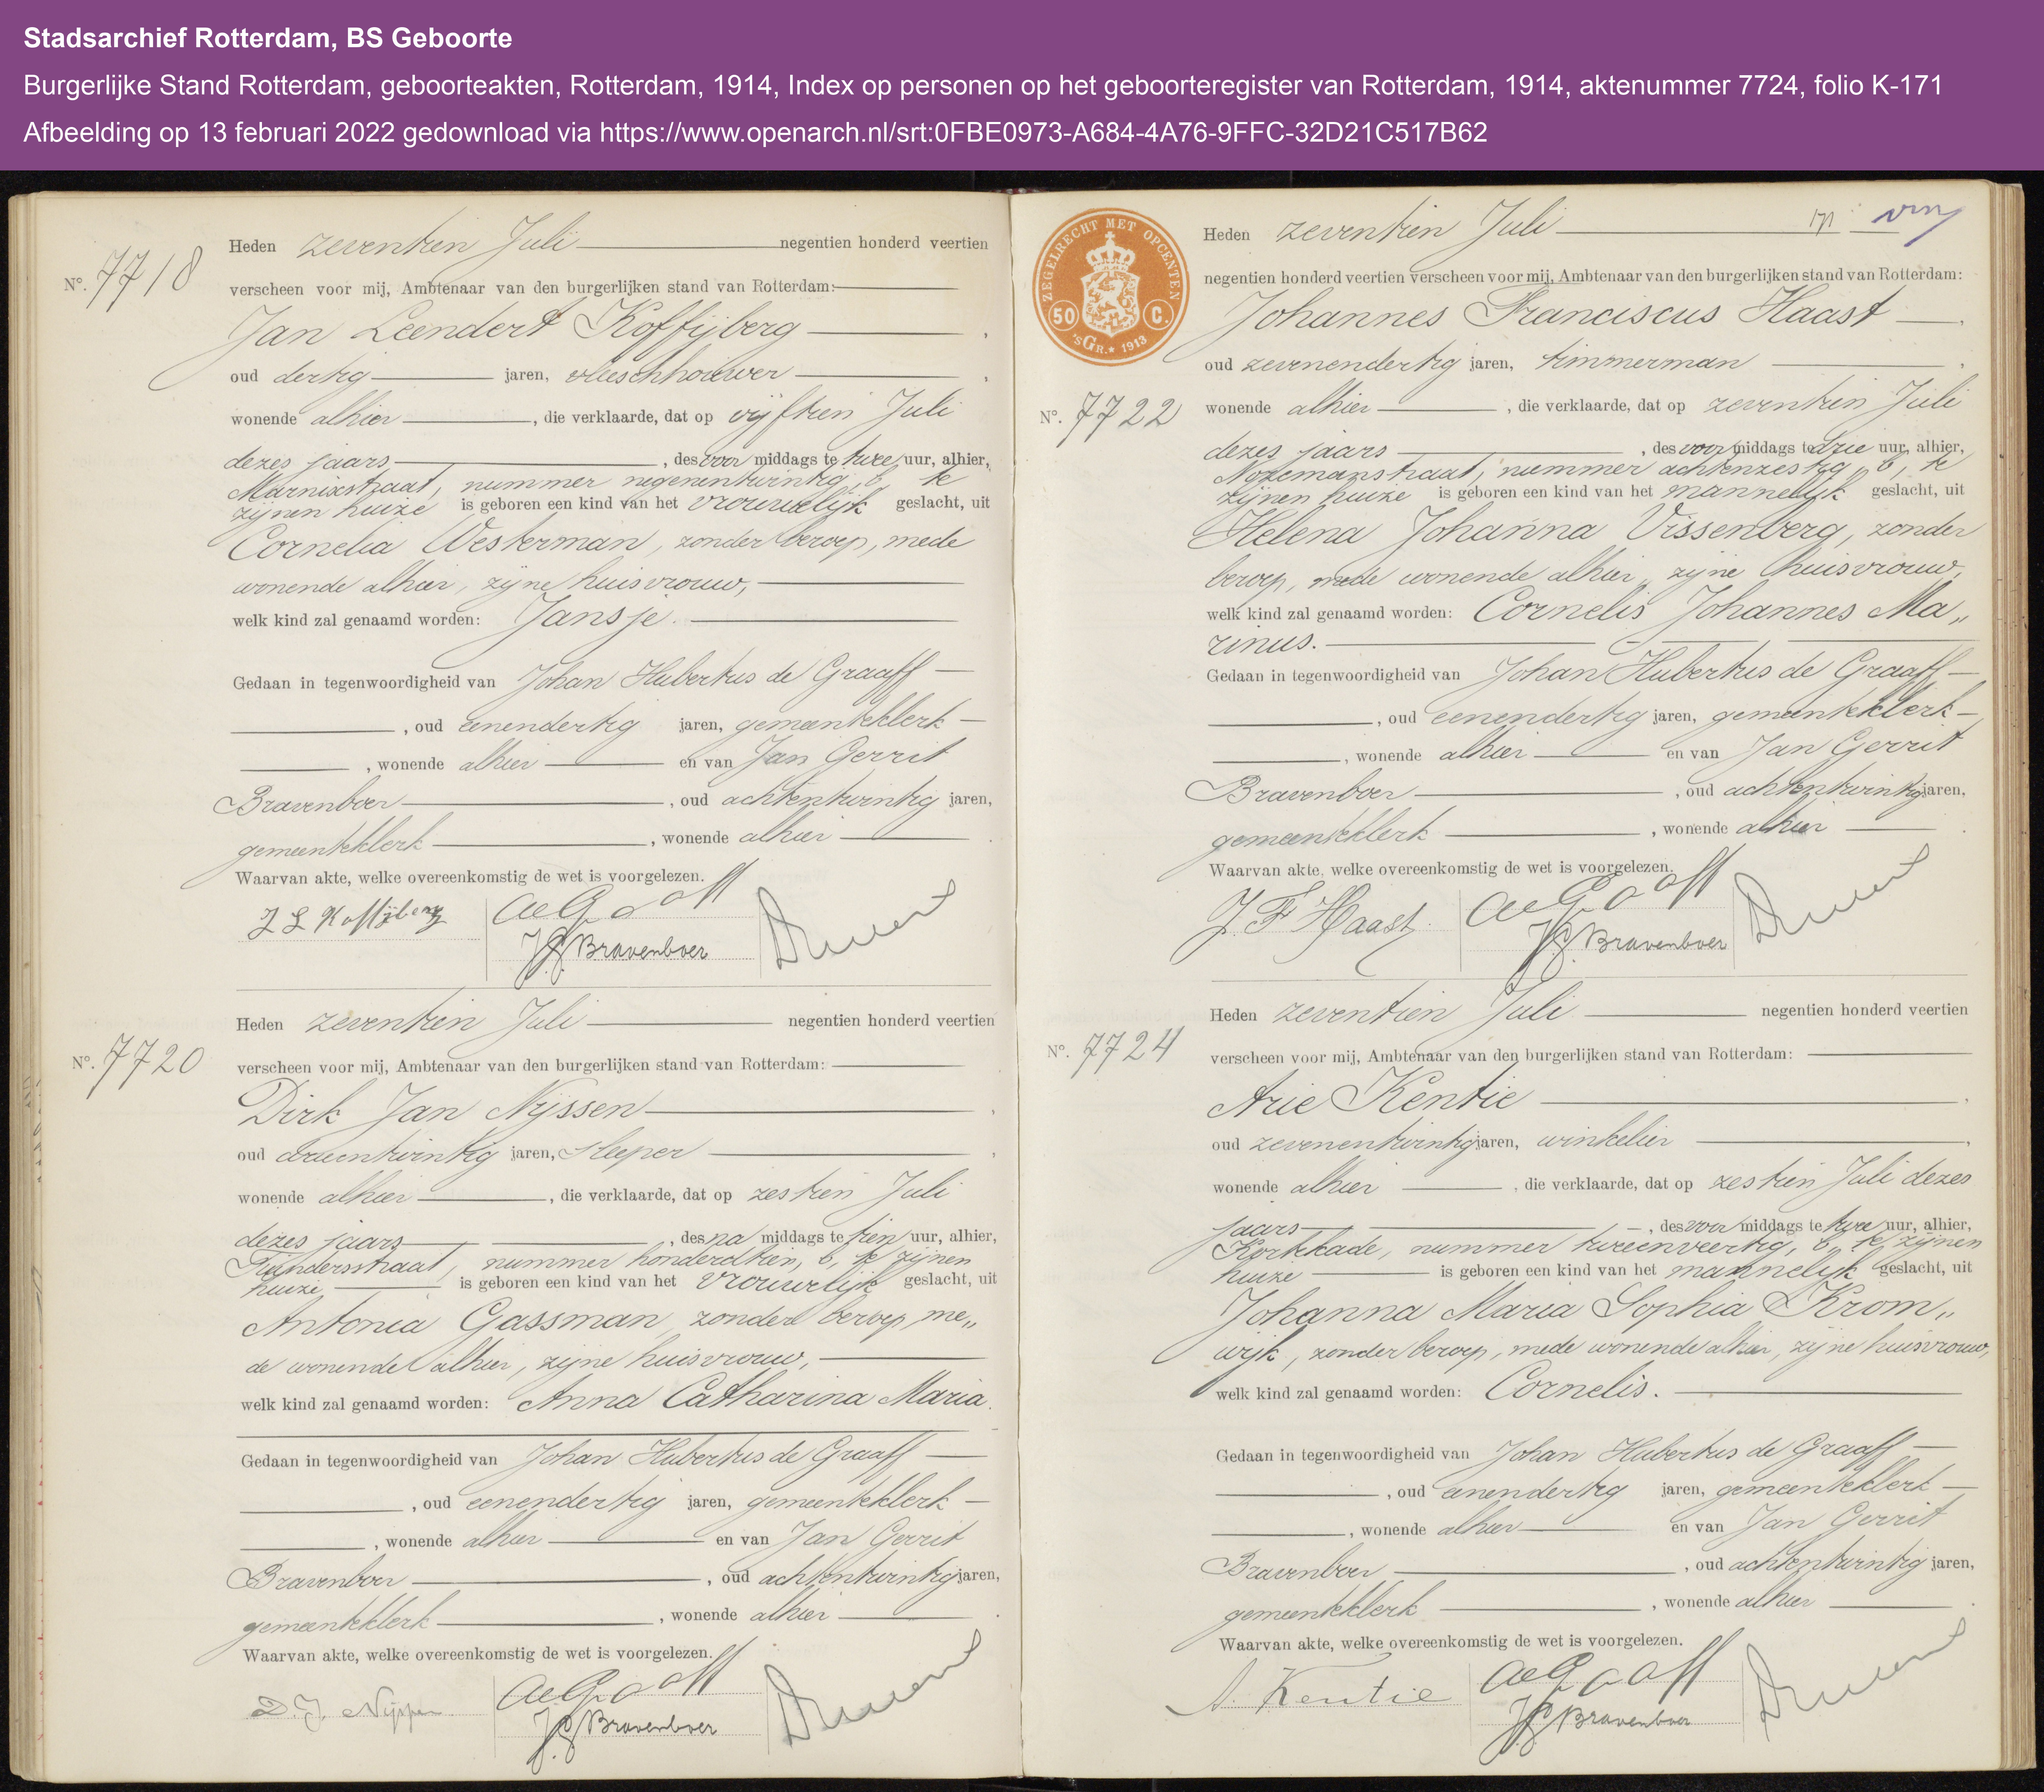 Stadsarchief Rotterdam, BS Geboorte
Burgerlijke Stand Rotterdam, geboorteakten, Rotterdam, 1914, Index op personen op het geboorteregister van Rotterdam, 1914, aktenummer 7724, folio K-171
Afbeelding op 13 februari 2022 gedownload via https://www.openarch.nl/srt:0FBE0973-A684-4A76-9FFC-32D21C517B62
Nº. 7718
Heden zeventien Juli negentien honderd veertien
verscheen voor mij, Ambtenaar van den burgerlijken stand van Rotterdam:
Jan Leendert Koffijberg,
oud dertig jaren, vleeschhouwer,
wonende alhier, die verklaarde, dat op vijftien Juli
dezes jaars, des voor middags te twee uur, alhier,
Marnixstraat, nummer negenentwintig, b, te
zijnen huize is geboren een kind van het vrouwelijk geslacht, uit
Cornelia Westerman, zonder beroep, mede
wonende alhier, zijne huisvrouw,
welk kind zal genaamd worden: Jansje.
Gedaan in tegenwoordigheid van Johan Hubertus de Graaff
, oud eenendertig jaren, gemeenteklerk
, wonende alhier en van Jan Gerrit
Bravenboer, oud achtentwintig jaren,
gemeenteklerk, wonende alhier.
Waarvan akte, welke overeenkomstig de wet is voorgelezen.
J L Koffijberg
de Graaff
JG Bravenboer
Nº. 7720
Heden zeventien Juli negentien honderd veertien
verscheen voor mij, Ambtenaar van den burgerlijken stand van Rotterdam:
Dirk Jan Nijssen,
oud drieentwintig jaren, sleeper,
wonende alhier, die verklaarde, dat op zestien Juli
dezes jaars, des na middags te tien uur, alhier,
nummer honderdtien, b, te zijnen
huize is geboren een kind van het vrouwelijk geslacht, uit
Antonia Gassman, zonder beroep, me„
de wonende alhier, zijne huisvrouw,
welk kind zal genaamd worden: Anna Catharina Maria.
Gedaan in tegenwoordigheid van Johan Hubertus de Graaff
, oud eenendertig jaren, gemeenteklerk
, wonende alhier en van Jan Gerrit
Bravenboer, oud achtentwintig jaren,
gemeenteklerk, wonende alhier.
Waarvan akte, welke overeenkomstig de wet is voorgelezen.
D.J. Nijssen
de Graaff
JG Bravenboer
ZEGELRECHT MET OPCENTEN
50 C.
'sGR. * 1913
171
Heden zeventien Juli
negentien honderd veertien verscheen voor mij, Ambtenaar van den burgerlijken stand van Rotterdam:
Johannes Franciscus Haast,
oud zevenendertig jaren, timmerman,
Nº. 7722
wonende alhier, die verklaarde, dat op zeventien Juli
dezes jaars, des voor middags te drie uur, alhier,
Nozemanstraat, nummer achtenzestig, b, te
zijnen huize is geboren een kind van het mannelijk geslacht, uit
Helena Johanna Vissenberg, zonder
beroep, mede wonende alhier, zijne huisvrouw,
welk kind zal genaamd worden: Cornelis Johannes Ma„
rinus.
Gedaan in tegenwoordigheid van Johan Hubertus de Graaff
, oud eenendertig jaren, gemeenteklerk
, wonende alhier en van Jan Gerrit
Bravenboer, oud achtentwintig jaren,
gemeenteklerk, wonende alhier.
Waarvan akte, welke overeenkomstig de wet is voorgelezen.
J. F Haast.
de Graaff
JG Bravenboer
Nº. 7724
Heden zeventien Juli negentien honderd veertien
verscheen voor mij, Ambtenaar van den burgerlijken stand van Rotterdam:
Arie Kentie,
oud zevenentwintig jaren, winkelier,
wonende alhier, die verklaarde, dat op zestien Juli dezes
jaars, des voor middags te twee uur, alhier,
Kortekade, nummer tweeenveertig, b, te zijnen
huize is geboren een kind van het mannelijk geslacht, uit
Johanna Maria Sophia Krom„
wijk, zonder beroep, mede wonende alhier, zijne huisvrouw,
welk kind zal genaamd worden: Cornelis.
Gedaan in tegenwoordigheid van Johan Hubertus de Graaff
, oud eenendertig jaren, gemeenteklerk
, wonende alhier en van Jan Gerrit
Bravenboer, oud achtentwintig jaren,
gemeenteklerk, wonende alhier.
Waarvan akte, welke overeenkomstig de wet is voorgelezen.
A. Kentie
de Graaff
JG Bravenboer